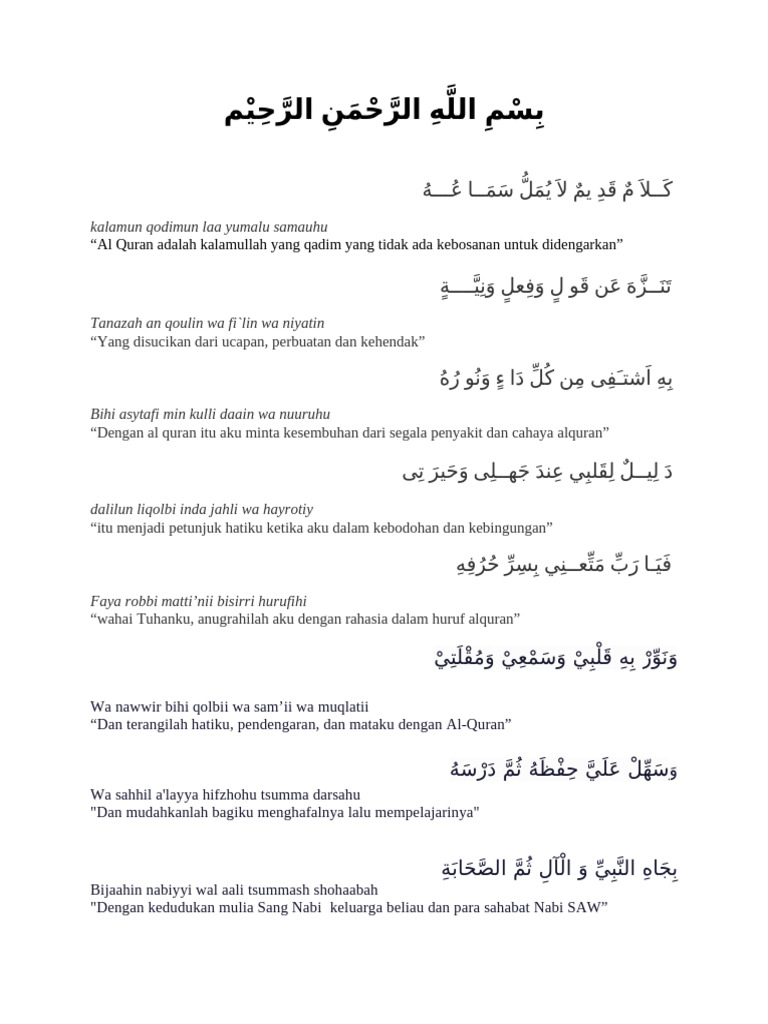 بِسْمِ اللَّهِ الرَّحْمَنِ الرَّحِيْم
كَــلاَ مٌ قَدِ يمٌ لاَ يُمَلُّ سَمَــا عُـــهُ
kalamun qodimun laa yumalu samauhu
“Al Quran adalah kalamullah yang qadim yang tidak ada kebosanan untuk didengarkan”
تَنَــزَّهَ عَن قَو لٍ وَفِعلٍ وَنِيَّــــةٍ
Tanazah an qoulin wa fi`lin wa niyatin
“Yang disucikan dari ucapan, perbuatan dan kehendak”
بِهِ اَشتـَفِى مِن كُلِّ دَا ءٍ وَنُو رُهُ
Bihi asytafi min kulli daain wa nuuruhu
“Dengan al quran itu aku minta kesembuhan dari segala penyakit dan cahaya alquran”
دَ لِيــلٌ لِقَلبِي عِندَ جَهــلِى وَحَيرَ تِى
dalilun liqolbi inda jahli wa hayrotiy
“itu menjadi petunjuk hatiku ketika aku dalam kebodohan dan kebingungan”
فَيَـا رَبِّ مَتِّعــنِي بِسِرِّ حُرُفِهِ
Faya robbi matti’nii bisirri hurufihi
“wahai Tuhanku, anugrahilah aku dengan rahasia dalam huruf alquran”
وَنَوِّرْ بِهِ قَلْبِيْ وَسَمْعِيْ وَمُقْلَتِيْ
Wa nawwir bihi qolbii wa sam’ii wa muqlatii
“Dan terangilah hatiku, pendengaran, dan mataku dengan Al-Quran”
وَسَهِّلْ عَلَيَّ حِفْظَهُ ثُمَّ دَرْسَهُ
Wa sahhil a'layya hifzhohu tsumma darsahu
"Dan mudahkanlah bagiku menghafalnya lalu mempelajarinya"
بِجَاهِ النَّبِيِّ وَ الْآلِ ثُمَّ الصَّحَابَةِ
Bijaahin nabiyyi wal aali tsummash shohaabah
"Dengan kedudukan mulia Sang Nabi  keluarga beliau dan para sahabat Nabi SAW”